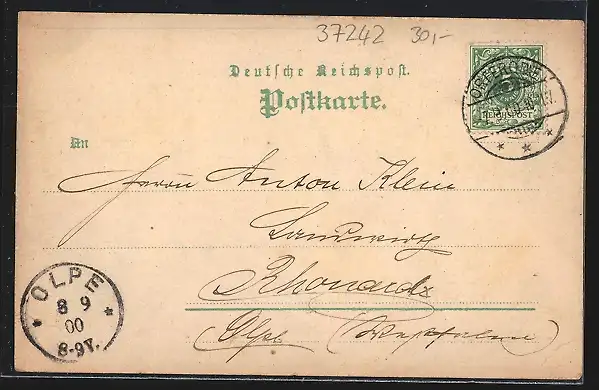 37242 30,-
Deutsche Reichspost.
Postkarte.
5
REICHSPOST
An
Herrn Anton Klein
Landwirth
Rhonard
Olpe (Westfalen)
OLPE
8 9
00
8-9V.